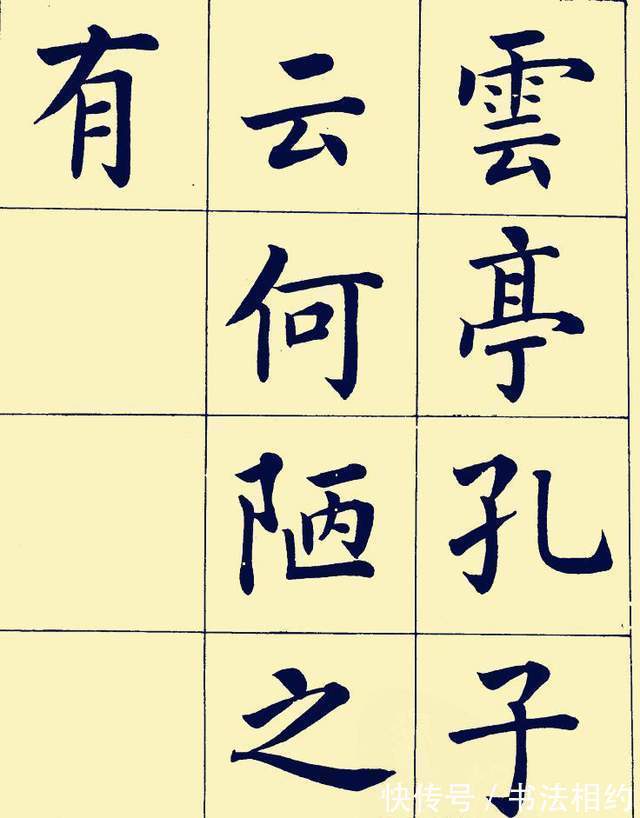 雲亭孔子
云何陋之
有
快传号 / 书法相约